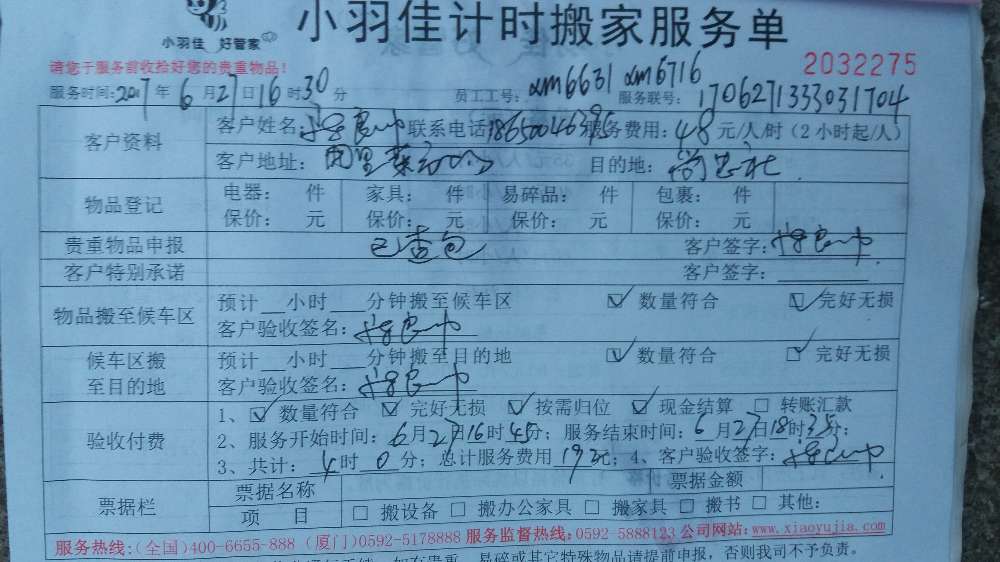 小羽佳 好管家
小羽佳计时搬家服务单
请您于服务前收拾好您的贵重物品!
2032275
服务时间:2017年6月27日16时30分 员工工号:xm6631 xm6716 服务联号:1706271333031704
客户资料
客户姓名 联系电话18650046395服务费用:48元/人/时(2小时起/人)
客户地址: 目的地:
物品登记
电器: 件 家具: 件 易碎品: 件 包裹: 件
保价: 元 保价: 元 保价: 元 保价: 元
贵重物品申报 已查包 客户签字:
客户特别承诺 客户签字:
物品搬至候车区
预计__小时___分钟搬至候车区 ☑数量符合 ☑完好无损
客户验收签名:
候车区搬至目的地
预计__小时___分钟搬至目的地 ☑数量符合 ☑完好无损
客户验收签名:
验收付费
1、☑数量符合 ☑完好无损 ☑按需归位 ☑现金结算 □转账汇款
2、服务开始时间:6月27日16时45分;服务结束时间:6月27日18时35分;
3、共计:4时0分;总计服务费用192元;4、客户验收签字:
票据栏
票据名称 票据金额
项 目 □搬设备 □搬办公家具 □搬家具 □搬书 □其他:
服务热线:(全国)400-6655-888 (厦门)0592-5178888 服务监督热线:0592-5888123 公司网站:www.xiaoyujia.com
易碎或其它特殊物品请提前申报,否则我司不予负责。